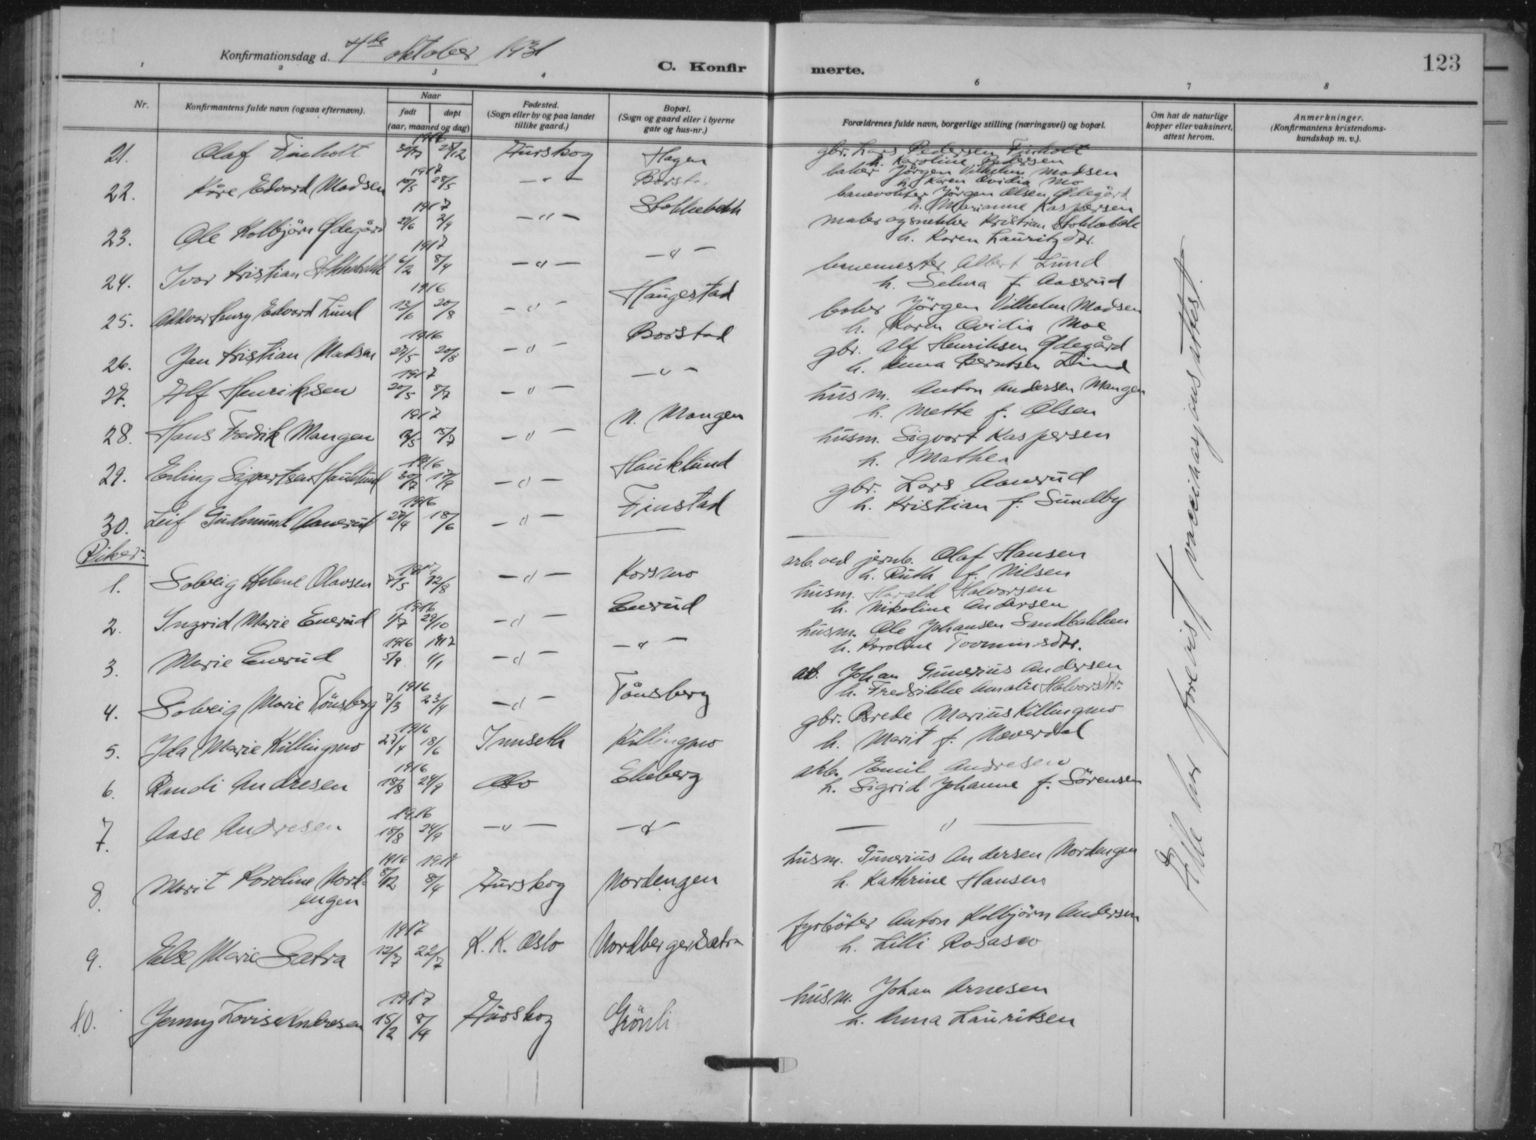 Konfirmationsdag d. 4de oktober 1931
C. Konfirmerte.
123
1 2 3 4 5 6 7 8
Nr. Konfirmantens fulde navn (ogsaa efternavn). Naar født døpt (aar, maaned og dag) Fødested. (Sogn eller by og paa landet tillike gaard.) Bopæl. (Sogn og gaard eller i byerne gate og hus-nr.) Forældrenes fulde navn, borgerlige stilling (næringsvei) og bopæl. Om hat de naturlige kopper eller vaksinert, attest herom. Anmerkninger. (Konfirmantens kristendoms-kundskap m. v.).
21. Olaf Finholt 1916 Aurskog Hagen gbr. Lars Pedersen Finholt
h. Karoline Pedersen
22. Kåre Edvard Madsen 1917 28/5 — " — Borstad baker Jørgen Vilhelm Madsen
h. Karen Ovidia Mo
23. Ole Kolbjørn Ødegård 1917 — " — Stokkebekk banevokter Jørgen Olsen Ødegård
h. Marianne Kaspersen
24. Ivar Kristian Stokkebekk 1917 6/2 8/4 — " — — " — maler og snekker Kristian Stokkebekk
h. Karen Lauritzdtr.
25. Oddvar Henry Edvard Lund 1916 13/6 20/8 — " — Haugestad banemester Albert Lund
h. Selma f. Aaserud
26. Jan Kristian Madsen 1916 27/5 20/8 — " — Borstad baker Jørgen Vilhelm Madsen
h. Karen Ovidia Moe
27. Alf Henriksen 1917 20/5 8/7 — " — — " — gbr. Alf Henriksen Ødegård
h. Anna Berntsen Lund
28. Hans Fredrik Mangen 1917 — " — N. Mangen husm. Anton Andersen Mangen
h. Mette f. Olsen
29. Erling Sigvartsen Hauklund 1916 30/7 17/9 — " — Hauklund husm. Sigvart Kaspersen
h. Mathea
30. Leif Gudmund Aamrud 1916 28/4 18/6 — " — Finstad gbr. Lars Aamrud
h. Kristian f. Sundby
Piker:
1. Solveig Helene Olavsen — " — Korsmo arb. ved jernb. Olaf Hansen
h. Ruth f. Nilsen
2. Ingrid Marie Enerud 1916 29/10 — " — Enerud husm. Harald Halvorsen
h. Nikoline Andersen
3. Marie Enerud 1916 1917 5/9 1/1 — " — — " — husm. Ole Johansen Sandbakken
h. Karoline
4. Solveig Marie Tönsberg 1916 7/3 23/4 — " — Tånsberg arb. Johan Gunerius Andersen
h. Fredrikke Amalie Halvorsdtr.
5. Ida Marie Killingmo 1916 23/4 18/6 Innseth Killingmo gbr. Brede Marius Killingmo
h. Marit f. Næverdal
6. Randi Andresen 1916 18/8 24/9 Oslo Ekeberg arb. Emil Andresen
h. Sigrid Johanne f. Sörensen
7. Aase Andresen 1916 18/8 24/9 — " — — " — — " —
8. Marit Karoline Nord-
engen 1916 1917 8/12 8/4 Aurskog Nordengen husm. Gunerius Andersen Nordengen
h. Kathrine Hansen
9. Else Marie Sætra 1917 12/7 22/7 K. K. Oslo Nordberger Sætra fyrböter Anton Kolbjörn Andersen
h. Lilli
10. Jenny Lovise Andresen 1917 15/2 8/4 Aurskog Grönli husm. Johan Arnesen
h. Anna Lauritsen
Alle har forevist vaccinasjons attest.